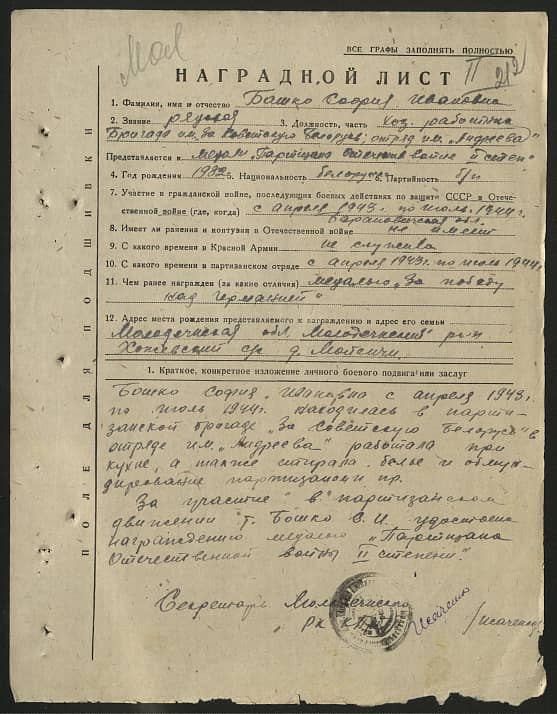 Мол
ВСЕ ГРАФЫ ЗАПОЛНЯТЬ ПОЛНОСТЬЮ
II
212
НАГРАДНОЙ ЛИСТ
1. Фамилия, имя и отчество Бошко София Ивановна
2. Звание рядовая 3. Должность, часть хоз. работник
Бригада им. За Советскую Белорусь; отряд им. „Андреева"
Представляется к медали „Партизана Отечествен войне II степ"
4. Год рождения 5. Национальность белоруска 6. Партийность б/п
7. Участие в гражданской войне, последующих боевых действиях по защите СССР в Отече-
ственной войне (где, когда) с апреля 1943г. по июль 1944г.
Барановическая обл.
8. Имеет ли ранения и контузии в Отечественной войне не имеет
9. С какого времени в Красной Армии не служила
10. С какого времени в партизанском отряде с апреля 1943г. по июль 1944г.
11. Чем ранее награжден (за какие отличия) медалью „За победу
над Германией"
12. Адрес места рождения представляемого к награждению и адрес его семьи
Молодечнская обл. Молодечненский р-н
Хожевский с/с д.
1. Краткое, конкретное изложение личного боевого подвига или заслуг
Бошко София Ивановна с апреля 1943г.
по июль 1944г. находилась в парти-
занской бригаде „За Советскую Белорусь" в
отряде им. „Андреева" работала при
кухне, а также стирала белье и обмун-
дирование партизанам и пр.
За участие в партизанском
движении т. Бошко С.И. удостоена
награждению медалью „Партизана
Отечественной войны II степени".
Секретарь Молодечнского
РК КП(б)Б Исаченко /Исаченко/
ПОЛЕ ДЛЯ ПОДШИВКИ